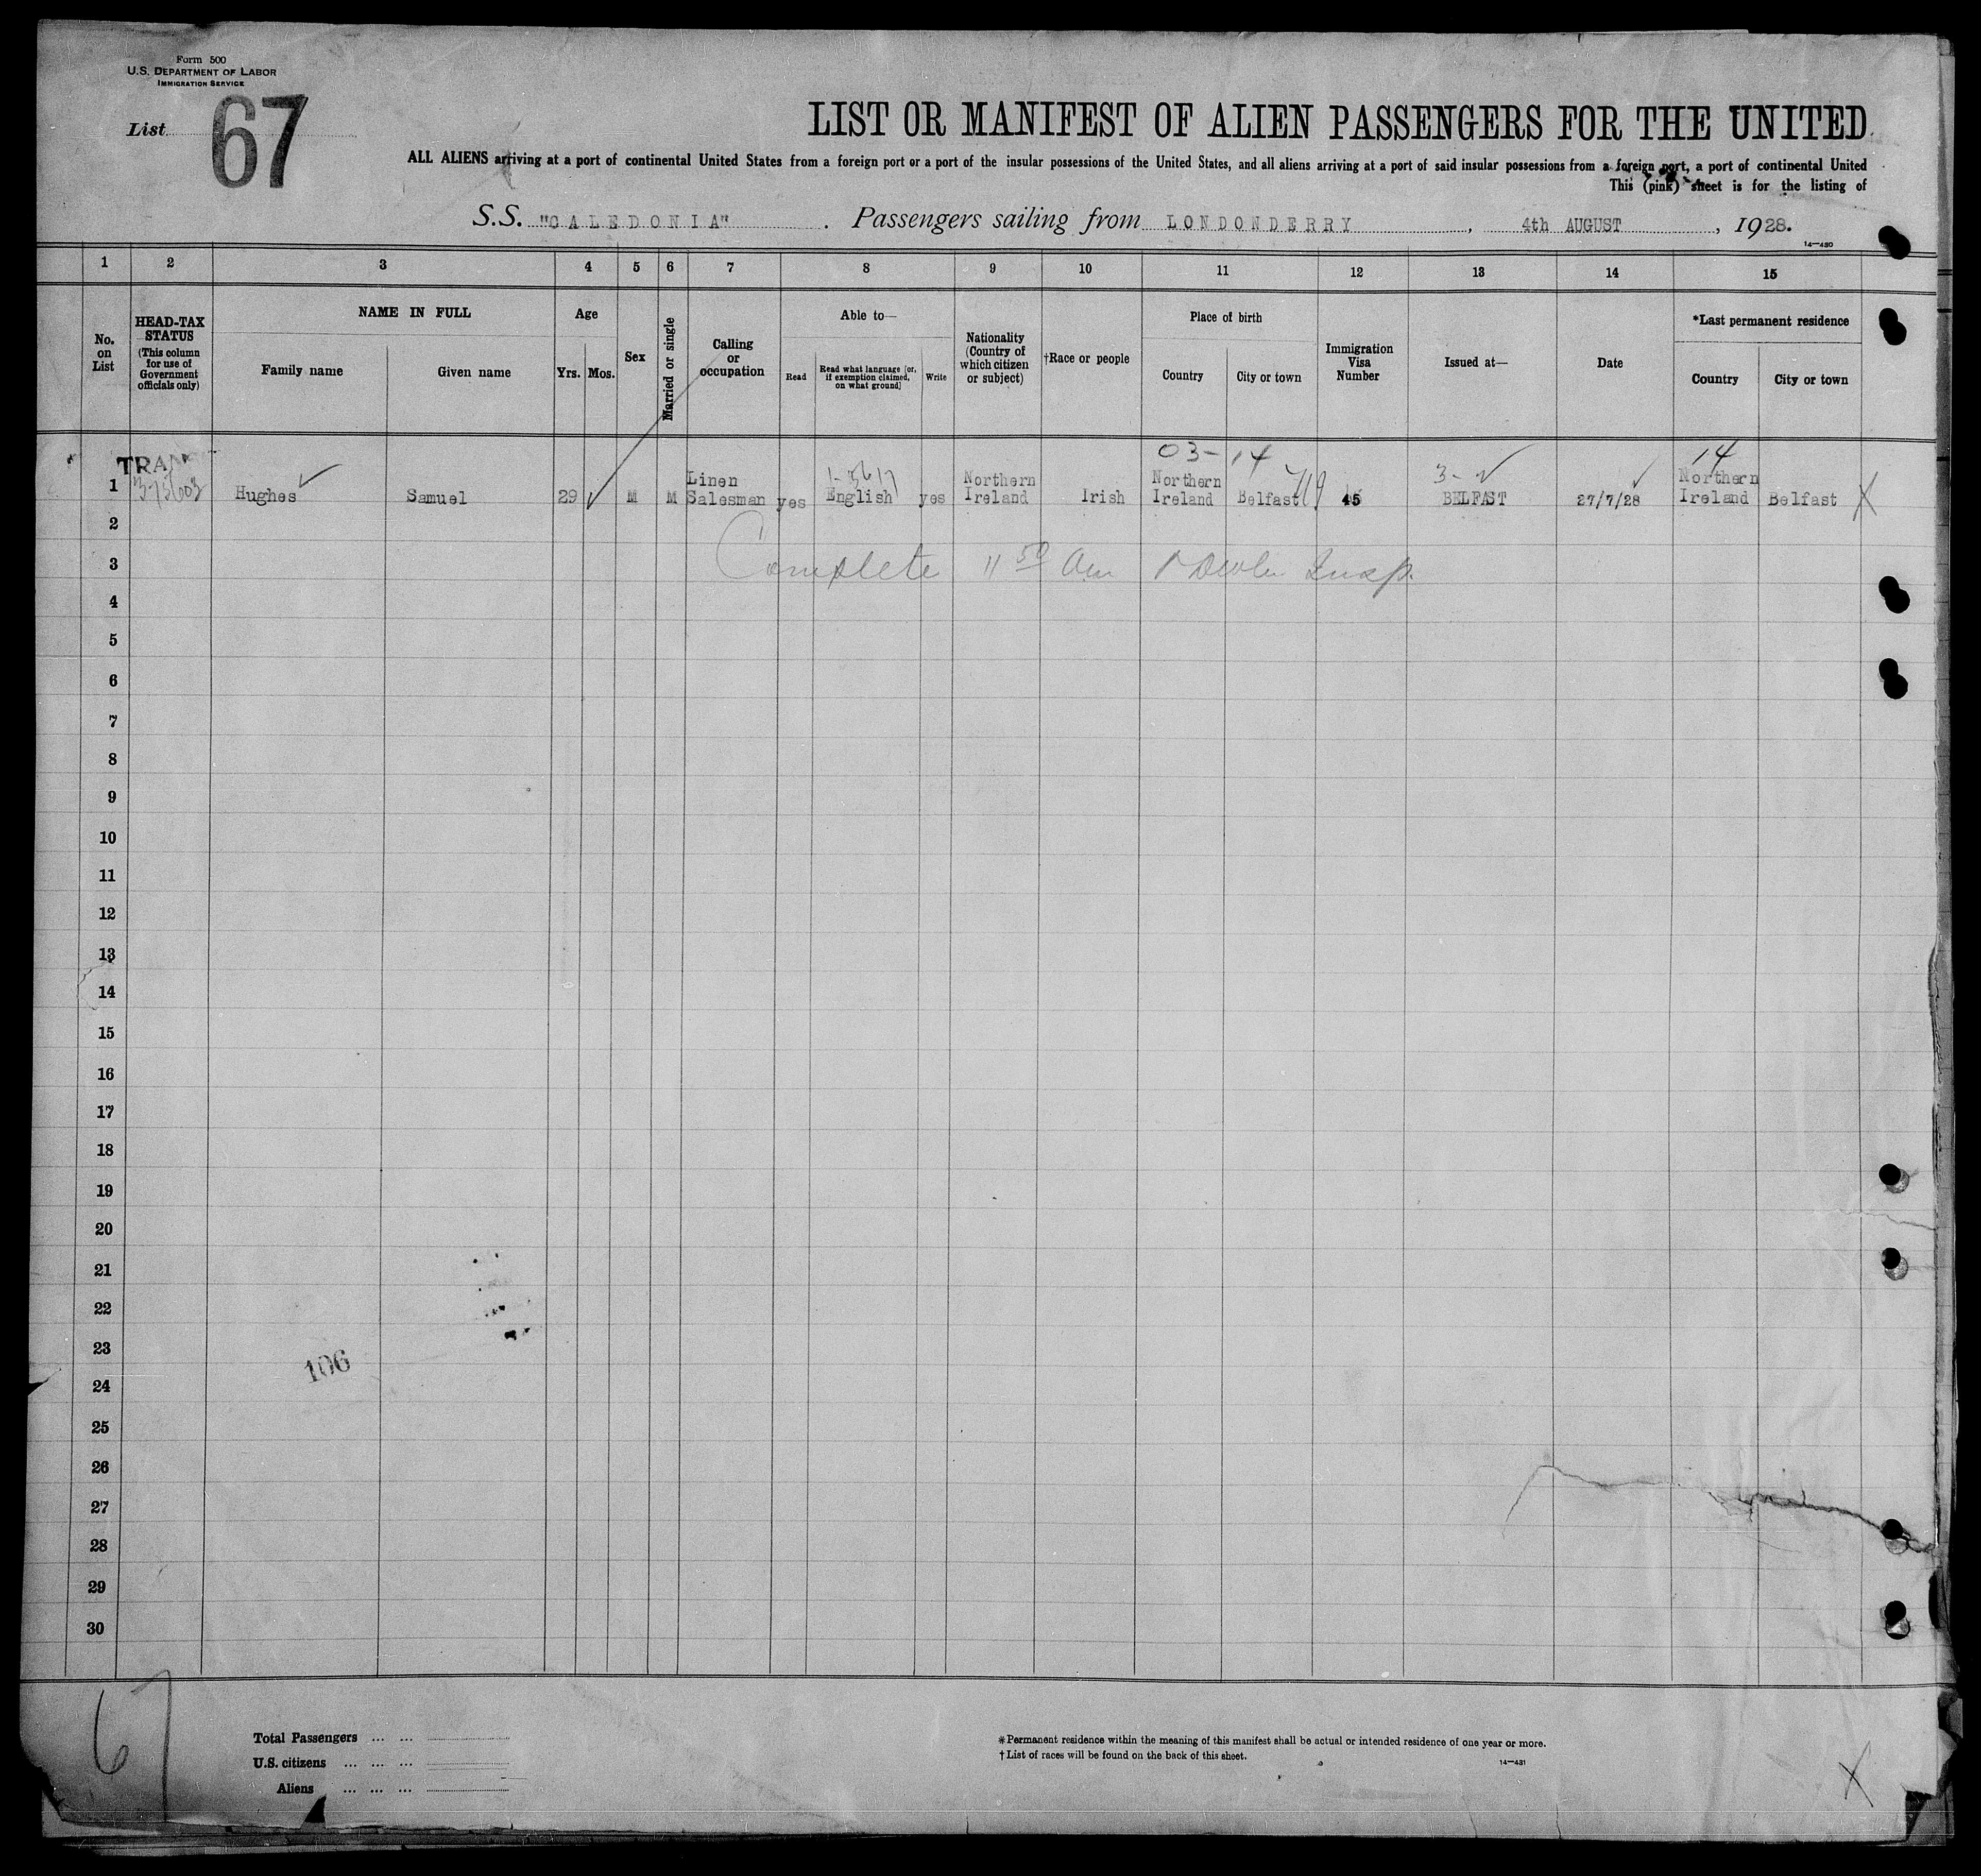 Form 500
U.S. DEPARTMENT OF LABOR
IMMIGRATION SERVICE
List 67
LIST OR MANIFEST OF ALIEN PASSENGERS FOR THE UNITED
ALL ALIENS arriving at a port of continental United States from a foreign port or a port of the insular possessions of the United States, and all aliens arriving at a port of said insular possessions from a foreign port, a port of continental United
This (pink) sheet is for the listing of
S.S. "CALEDONIA". Passengers sailing from LONDONDERRY, 4th AUGUST, 1928.
14—430
1 2 3 4 5 6 7 8 9 10 11 12 13 14 15
No. on List
HEAD-TAX STATUS
(This column for use of Government officials only)
NAME IN FULL
Family name
Given name
Age
Yrs.
Mos.
Sex
Married or single
Calling or occupation
Able to—
Read
Read what language [or, if exemption claimed, on what ground]
Write
Nationality (Country of which citizen or subject)
†Race or people
Place of birth
Country
City or town
Immigration Visa Number
Issued at—
Date
*Last permanent residence
Country
City or town
03-14
14
1 Hughes Samuel 29 M M Linen Salesman yes English yes Northern Ireland Irish Northern Ireland Belfast 45 BELFAST 27/7/28 Northern Ireland Belfast X
2
3 Complete 11 50 Am Insp.
4
5
6
7
8
9
10
11
12
13
14
15
16
17
18
19
20
21
22
23
106
24
25
26
27
28
29
30
67
Total Passengers ... ...
U.S. citizens ... ... ...
Aliens ... ... ...
*Permanent residence within the meaning of this manifest shall be actual or intended residence of one year or more.
†List of races will be found on the back of this sheet.
14—431
X